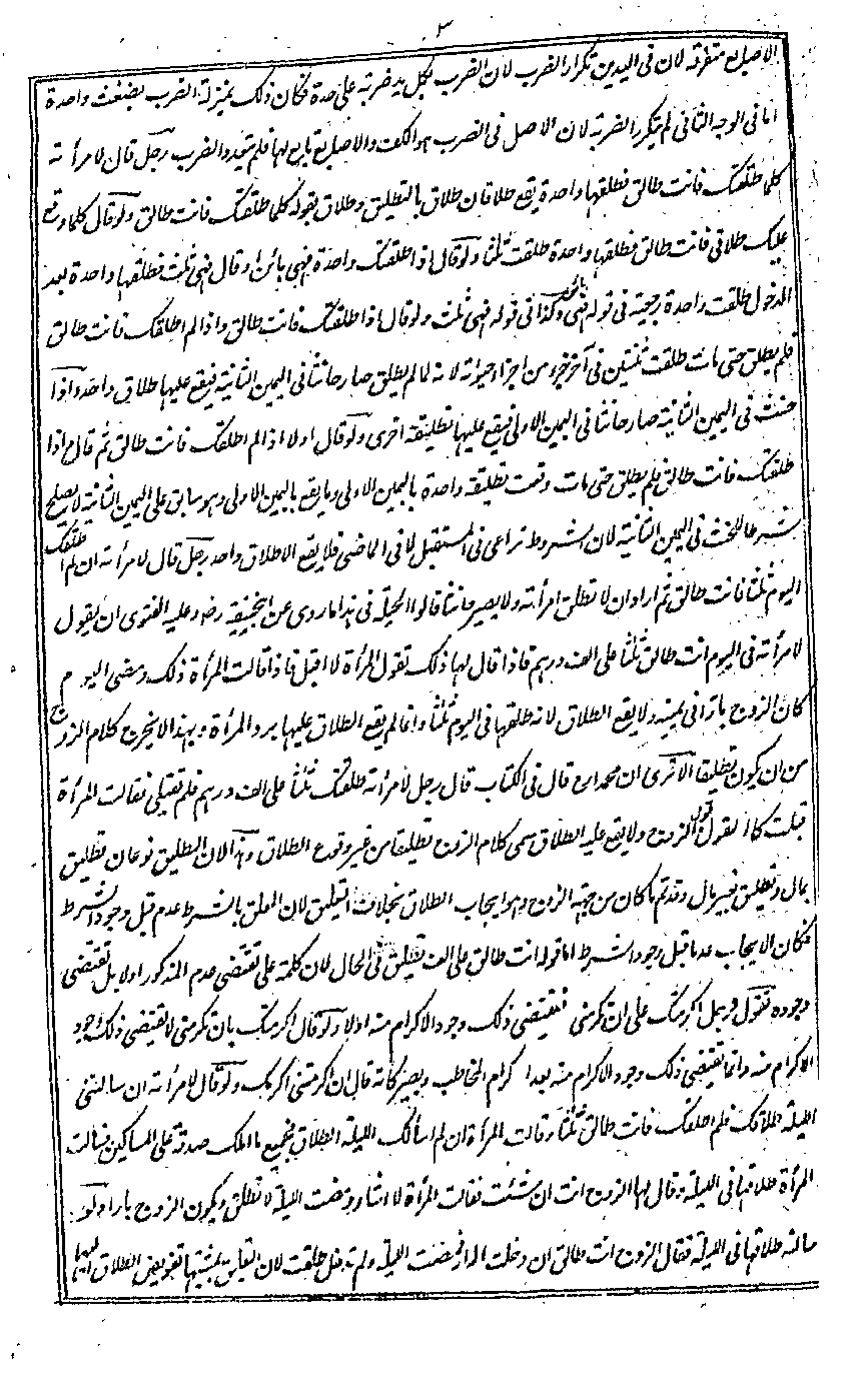 ٣
الاصابع متفرقة لان فى اليدين تكرار الضرب لان الضرب بكل يد ضربة على حدة فكان ذلك بمنزلة الضرب بضغث واحدة
اما فى الوجه الثانى لم يتكرر الضربة لان الاصل فى الضرب هو الكف والاصابع تابع لها فلم يتعدد الضرب رجل قال لامرأته
كلما طلقتك فانت طالق فطلقها واحدة يقع طلاقان طلاق بالتطليق وطلاق بقوله كلما طلقتك فانت طالق ولو قال كلما وقع
عليك طلاقى فانت طالق فطلقها واحدة طلقت ثلثا ولو قال اذا طلقتك واحدة فهى بائن او قال فهى ثلث فطلقها واحدة بعد
الدخول طلقت واحدة رجعية فى قوله فهى بائن وكذا فى قوله فهى ثلث ولو قال اذا طلقتك فانت طالق واذا لم اطلقك فانت طالق
فلم يطلق حتى مات طلقت ثنتين فى آخر جزء من اجزاء حيوته لانه لما لم يطلق صار حانثا فى اليمين الثانية فيقع عليها طلاق واحد واذا
حنث فى اليمين الثانية صار حانثا فى اليمين الاولى فيقع عليها تطليقة اخرى ولو قال اولا اذا لم اطلقك فانت طالق ثم قال اذا
طلقتك فانت طالق فلم يطلق حتى مات وقعت تطليقة واحدة باليمين الاولى وما يقع باليمين الاولى وهو سابق على اليمين الثانية لا يصلح
شرطا للحنث فى اليمين الثانية لان الشروط تراعى فى المستقبل لا فى الماضى فلا يقع الا طلاق واحد رجل قال لامرأته ان لم اطلقك
اليوم ثلثا فانت طالق ثم اراد ان لا تطلق امرأته ولا يصير حانثا قالوا الحيلة فى هذا ما روى عن ابيحنيفة رضه وعليه الفتوى ان يقول
لامرأته فى اليوم انت طالق ثلثا على الف درهم فاذا قال لها ذلك تقول المرأة لا اقبل فاذا قالت المرأة ذلك ومضى اليوم
كان الزوج بارا فى يمينه ولا يقع الطلاق لانه طلقها فى اليوم ثلثا وانما لم يقع الطلاق عليها برد المرأة وبهذا لا يخرج كلام الزوج
من ان يكون تطليقا الا ترى ان محمدا رح قال فى الكتاب قال رجل لامرأته طلقتك ثلثا على الف درهم فلم تقبلى فقالت المرأة
قبلت كان القول قول الزوج ولا يقع عليه الطلاق سمى كلام الزوج تطليقا من غير وقوع الطلاق وهذا لان التطليق نوعان تطليق
بمال وتطليق بغير مال وقد تم ما كان من جهة الزوج وهو ايجاب الطلاق بخلاف التعليق لان المعلق بالشرط عدم قبل وجود الشرط
فكان الايجاب عدما قبل وجود الشرط اما قوله انت طالق على الف تطليق فى الحال لان كلمة على تقتضى عدم المذكور اولا بل تقتضى
وجوده تقول لرجل اكرمتك على ان تكرمنى فتقتضى ذلك وجود الاكرام منه اولا ولو قال اكرمتك بان تكرمنى لا تقتضى ذلك وجود
الاكرام منه وانما تقتضى ذلك وجود الاكرام منه بعد اكرام المخاطب ويصير كانه قال ان اكرمتنى اكرمك ولو قال لامرأته ان سالتنى
الليلة طلاقك فلم اطلقك فانت طالق ثلثا وقالت المرأة ان لم اسألك الليلة الطلاق فجميع ما املك صدقة على المساكين فسألت
المرأة طلاقها فى الليلة وقال لها الزوج انت ان شئت فقالت المرأة لا اشاء ومضت الليلة لا تطلق ويكون الزوج بارا ولو
سالته طلاقها فى الليلة فقال الزوج انت طالق ان دخلت الدار فمضت الليلة ولم تدخل طلقت لان التعليق بمشيتها تفويض الطلاق اليها